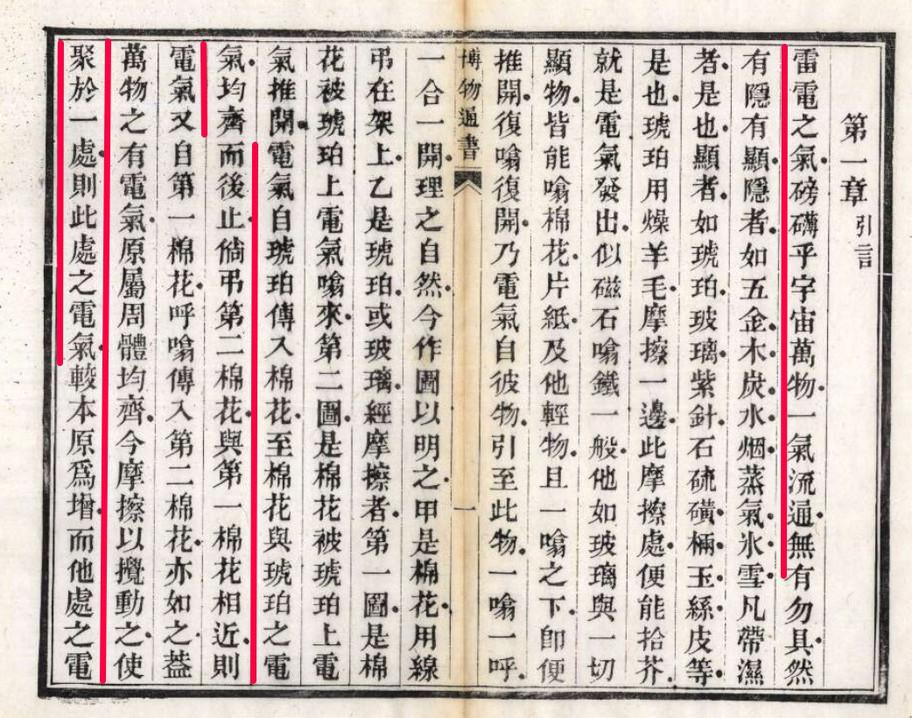 第一章 引言
雷電之氣磅礴乎宇宙萬物一氣流通無有勿具然
有隱有顯隱者如五金木炭水烟蒸氣氷雪凡帶濕
者是也顯者如琥珀玻璃紫針石硫磺玉絲皮等
是也琥珀用燥羊毛摩擦一邊此摩擦處便能拾芥
就是電氣發出似磁石噏鐵一般他如玻璃與一切
顯物皆能噏棉花片紙及他輕物且一噏之下卽便
推開復噏復開乃電氣自彼物引至此物一噏一呼
博物通書 一
一合一開理之自然今作圖以明之甲是棉花用線
弔在架上乙是琥珀或玻璃經摩擦者第一圖是棉
花被琥珀上電氣噏來第二圖是棉花被琥珀上電
氣推開電氣自琥珀傳入棉花至棉花與琥珀之電
氣均齊而後止倘弔第二棉花與第一棉花相近則
電氣又自第一棉花呼噏傳入第二棉花亦如之葢
萬物之有電氣原屬周體均齊今摩擦以攪動之使
聚於一處則此處之電氣較本原爲增而他處之電